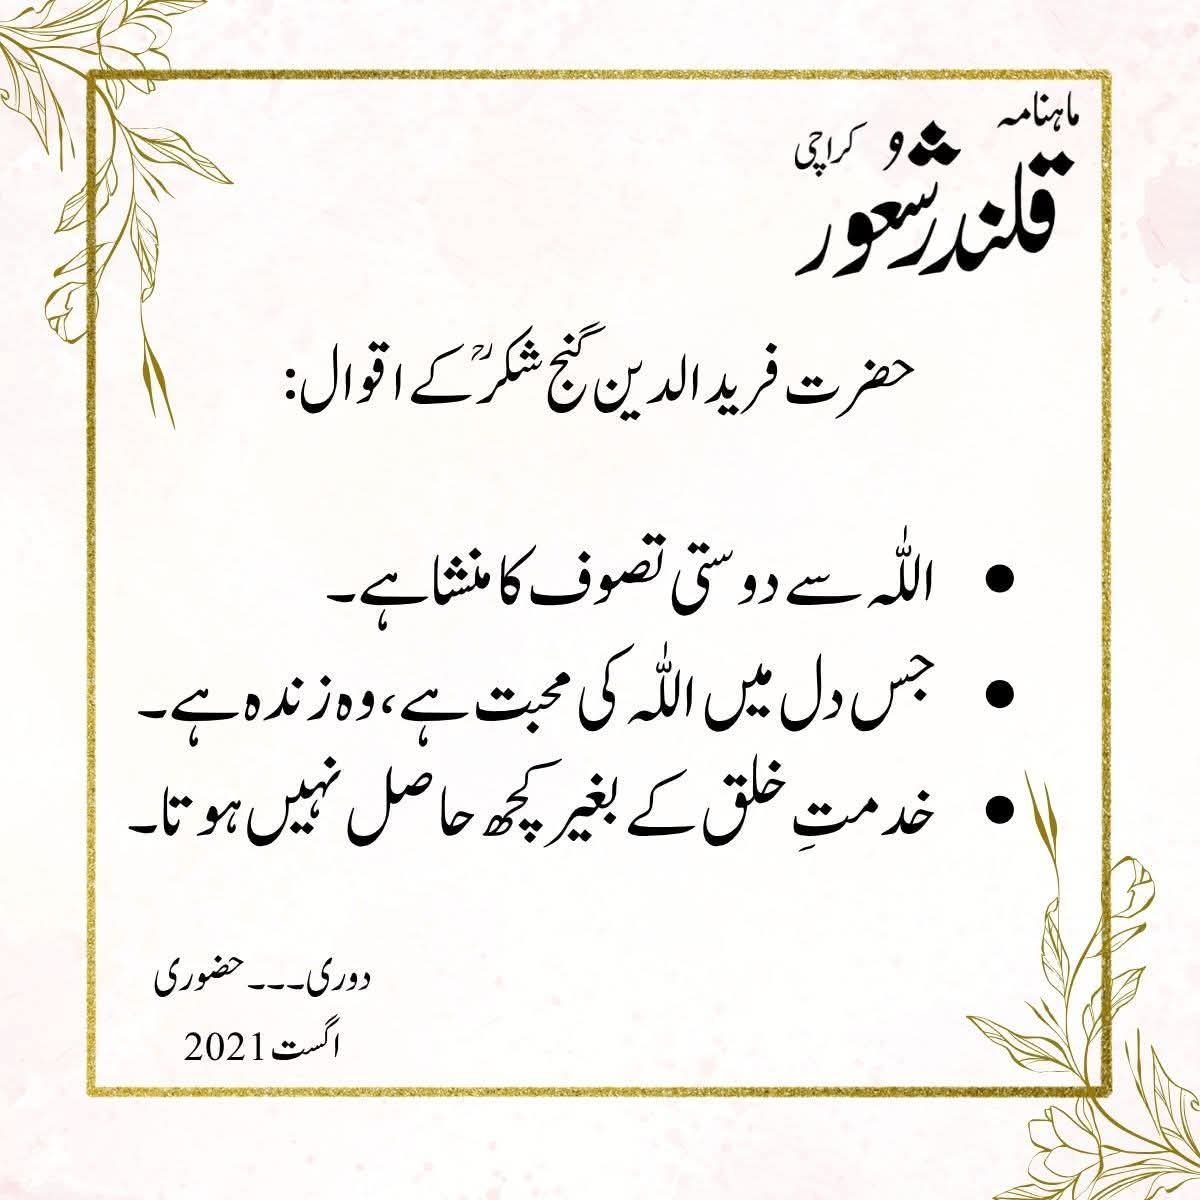 ماہنامہ
قلندر شعُور کراچی
حضرت فرید الدین گنج شکرؒ کے اقوال:
● اللہ سے دوستی تصوف کا منشا ہے۔
● جس دل میں اللہ کی محبت ہے، وہ زندہ ہے۔
● خدمتِ خلق کے بغیر کچھ حاصل نہیں ہوتا۔
دوری۔۔۔حضوری
اگست 2021